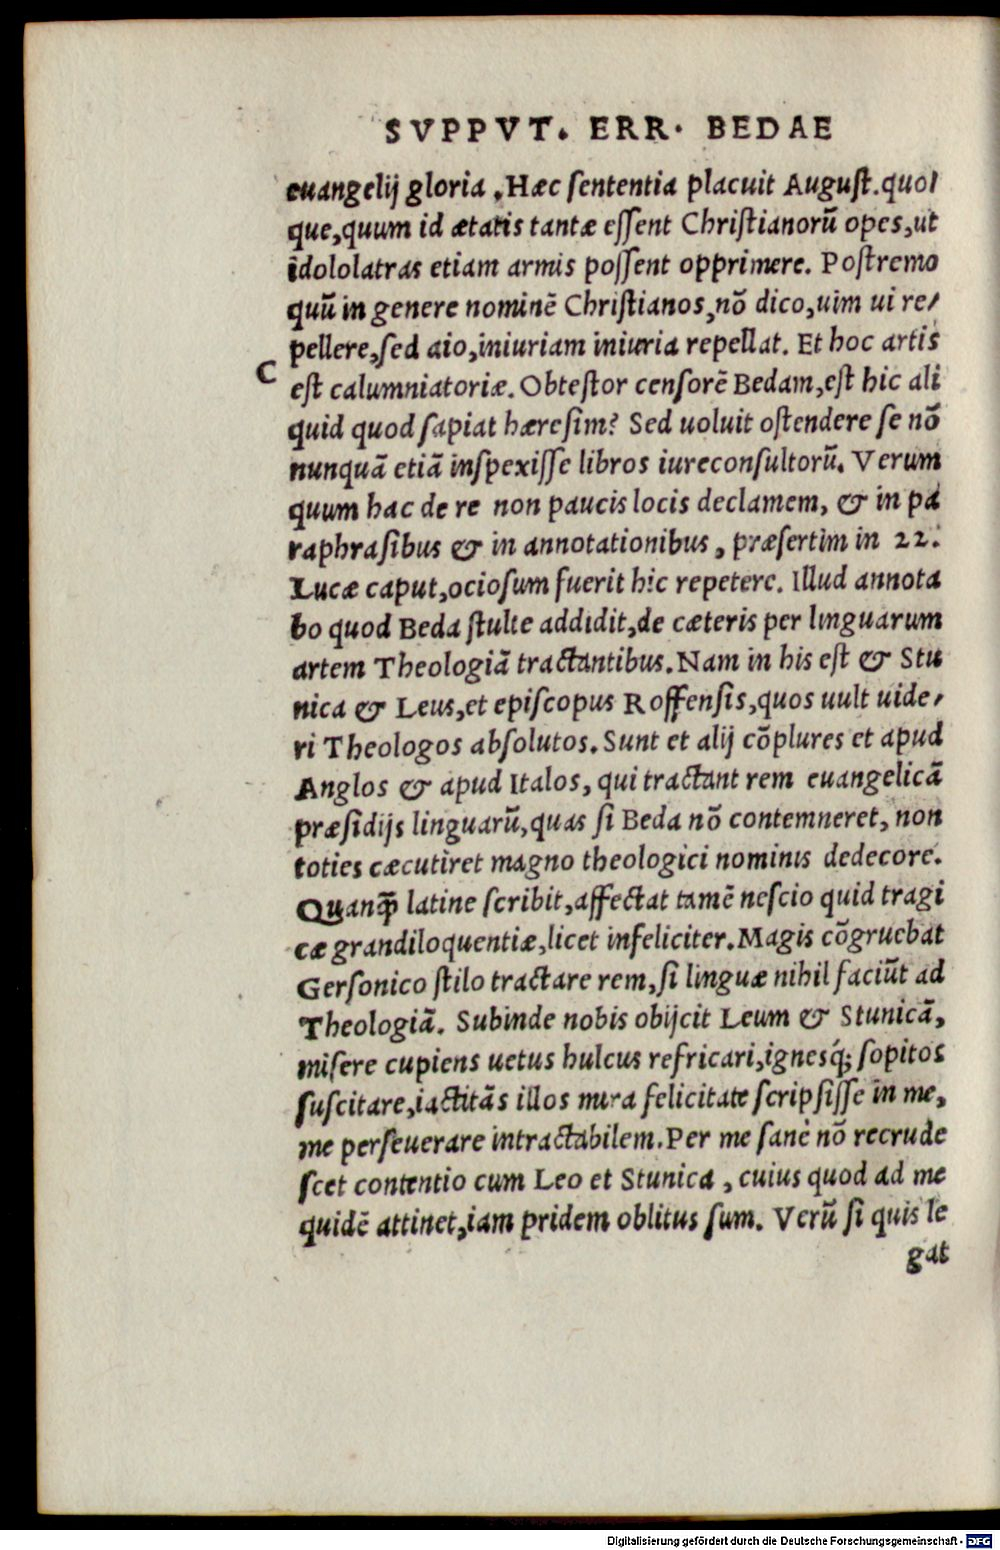 SVPPVT. ERR. BEDAE
euangelij gloria. Hæc sententia placuit August. quo/
que, quum id ætatis tantæ essent Christianorū opes, ut
idololatras etiam armis possent opprimere. Postremo
quū in genere nominē Christianos, nō dico, uim ui re/
pellere, sed aio, iniuriam iniuria repellat. Et hoc artis
C
est calumniatoriæ. Obtestor censorē Bedam, est hic ali
quid quod sapiat hæresim? Sed uoluit ostendere se nō
nunquā etiā inspexisse libros iureconsultorū. Verum
quum hac de re non paucis locis declamem, & in pa
raphrasibus & in annotationibus, præsertim in 22.
Lucæ caput, ociosum fuerit hic repetere. Illud annota
bo quod Beda stulte addidit, de cæteris per linguarum
artem Theologiā tractantibus. Nam in his est & Stu
nica & Leus, et episcopus Roffensis, quos uult uide/
ri Theologos absolutos. Sunt et alij cōplures et apud
Anglos & apud Italos, qui tractant rem euangelicā
præsidijs linguarū, quas si Beda nō contemneret, non
toties cæcutiret magno theologici nominis dedecore.
Quanq̄ latine scribit, affectat tamē nescio quid tragi
cæ grandiloquentiæ, licet infeliciter. Magis cōgruebat
Gersonico stilo tractare rem, si linguæ nihil faciūt ad
Theologiā. Subinde nobis obijcit Leum & Stunicā,
misere cupiens uetus hulcus refricari, ignesq́; sopitos
suscitare, iactitās illos mira felicitate scripsisse in me,
me perseuerare intractabilem. Per me sanè nō recrude
scet contentio cum Leo et Stunica, cuius quod ad me
quidē attinet, iam pridem oblitus sum. Verū si quis le
gat
Digitalisierung gefördert durch die Deutsche Forschungsgemeinschaft - DFG